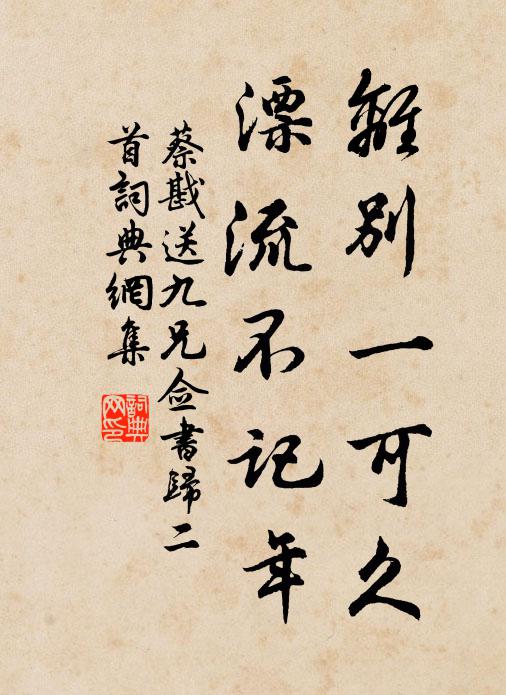 離別一可久
漂流不記年
蔡戡送九兄僉書歸二
首詞典網集
詞典
网印